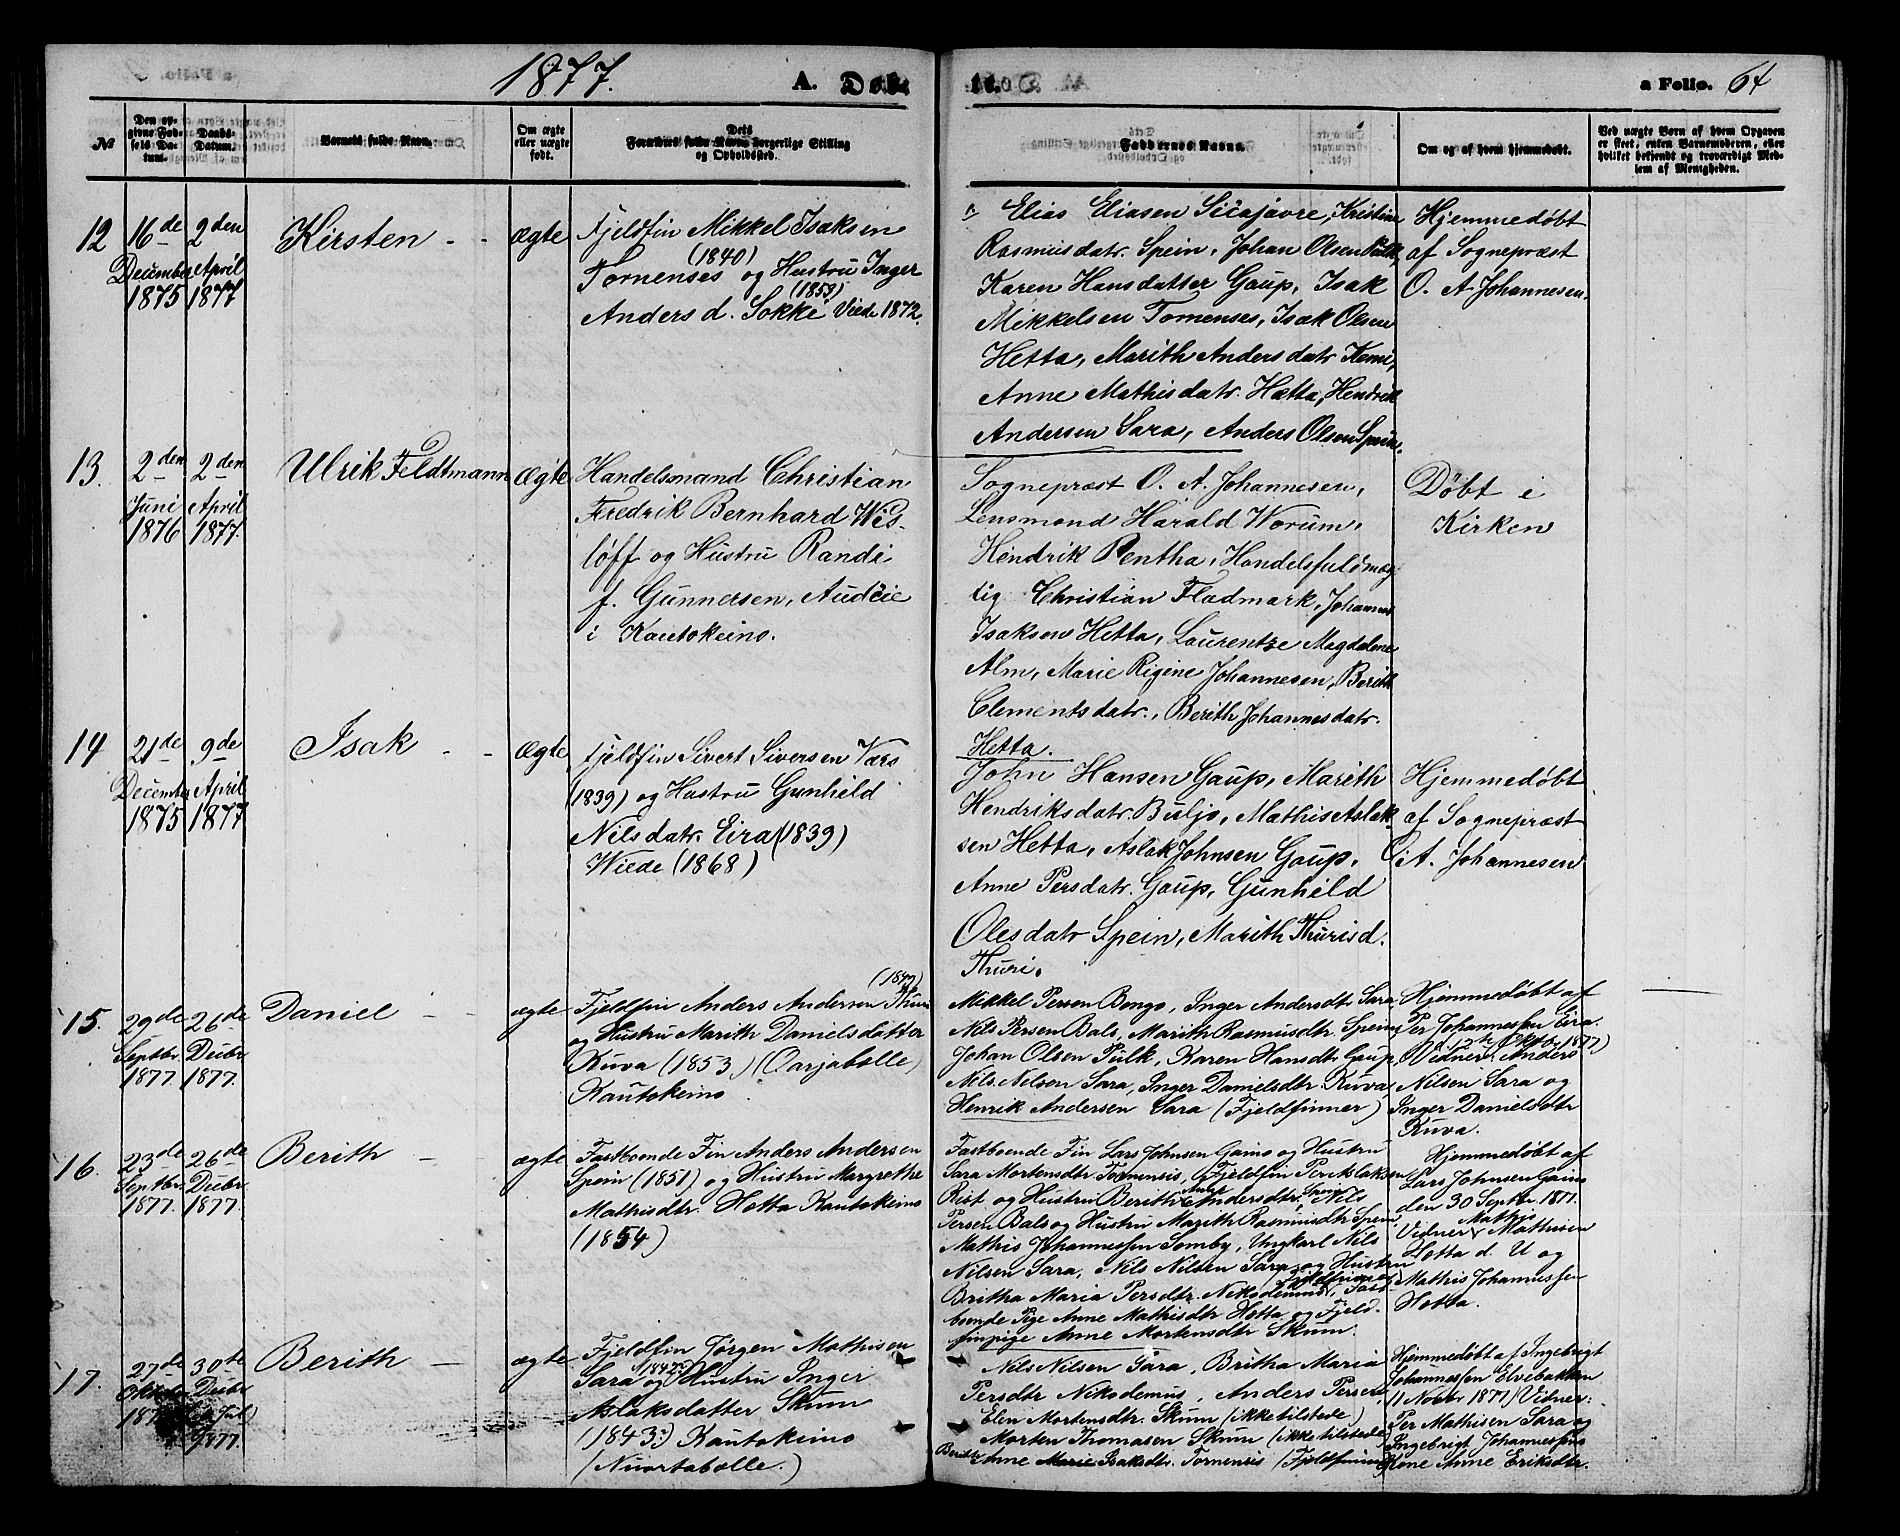 1877.
A. Døb-
te.
a Folio. 64
№
Den op-
givne Fød-
sels Da-
tum.
Daabs-
Datum.
Barnets fulde Navn.
Om ægte
eller uægte
født.
Dets
Forældres fulde Navn, borgerlige Stilling
og Opholdssted.
Faddernes Navne.
Om og af hvem hjemmedøbt.
Ved uægte Børn af hvem Opgaven
er skeet, enten Barnemoderen, eller
hvilket bekjendt og troværdigt Med-
lem af Menigheden.
12
16de
December
1875
2den
April
1877
Kirsten - -
ægte
Fjeldfin Mikkel Isaksen
(1840)
Tornenses og Hustru Inger
(1859)
Anders d. Sokki Viede 1872.
Elias Eliasen Sicajavre, Kristine
Rasmusdatr. Spein, Johan Olsen Pulk,
Karen Hansdatter Gaup, Isak
Mikkelsen Tornenses, Isak Olsen
Hetta, Marith Andersdatr Kemi,
Anne Mathisdatr. Hætta, Hendrik
Andersen Sara, Anders Olsen Spein.
Hjemmedøbt
af Sognepræst
O. A. Johannesen.
13.
2den
Juni
1876
2den
April
1877.
Ulrik Feldtmann
Ægte
Handelsmand Christian
Fredrik Bernhard Wis-
løff og Hustru Randi
f. Gunnersen, Audeie
i Kautokeino.
Sognepræst O. A. Johannesen,
Lensmand Harald Worum,
Hendrik Rentha, Handelsfuldmæg-
tig Christian Fladmark, Johannes
Isaksen Hetta, Laurentze Magdalene
Alm, Marie Rigine Johannesen, Berith
Clementsdatr., Berith Johannesdatr.
Hetta.
Døbt i
Kirken
14
21de
December
1875
9de
April
1877
Isak - -
Ægte
Fjeldfin Sivert Siversen Vars
(1839) og Hustru Gunhild
Nilsdatr. Eira (1839)
Wiede (1868)
John Hansen Gaup, Marith
Hendriksdatr. Buljo, Mathis Aslak-
sen Hetta, Aslak Johnsen Gaup,
Anne Persdatr. Gaup, Gunhild
Olesdatr Spein, Marith Thurisd.
Thuri.
Hjemmedøbt
af Sognepræst
O. A. Johannesen
15.
29de
Septbr.
1877
26de
Decbr
1877.
Daniel - -
ægte
(1849)
Fjeldfin Anders Andersen Thuri
og Hustru Marith Danielsdatter
Kuva (1853) (Oarjabølle)
Kautokeino
Mikkel Persen Bongo, Inger Andersdtr Sara
Nils Persen Bals, Marith Rasmusdtr. Spein,
Johan Olsen Pulk, Karen Hansdtr. Gaup,
Nils Nilsen Sara, Inger Danielsdtr. Kuva,
Henrik Andersen Sara (Fjeldfinner)
Hjemmedøbt af
Per Johannessen Eira.
(12te Oktbr 1877)
Vidner: Anders
Nilsen Sara og
Inger Danielsdtr
Kuva.
16.
23de
Septbr.
1877.
26de
Decbr
1877.
Berith -
ægte
Fastboende Fin Anders Andersen
Spein (1851) og Hustru Margrethe
Mathisdtr. Hetta Kautokeino
(1854)
Fastboende Fin Lars Johnsen Gaino og Hustru
Sara Mortensdtr Tornensis, Fjeldfin Per Aslaksen
Rist og Hustru Berith Andersdtr, Nils
Persen Bals og Hustru Marith Rasmusdtr Spein,
Mathis Johannessen Somby, Ungkarl Nils
Nilsen Sara, Nils Nilsen Sara og Hustru
(Fjeldfinner)
Britha Maria Persdtr. Nikodemus, Fast-
boende Pige Anne Mathisdtr Hetta og Fjeld-
finpige Anne Mortensdtr Skum.
Hjemmedøbt af
Lars Johnsen Gaino
den 30 Septbr. 1877.
Mathis
Vidner Mathisen
Hetta d. U og
Mathis Johannessen
Hetta.
17.
27de
Oktober
30te
Decbr
(6 Jul)
1877.
Berith -
ægte
Fjeldfin Jørgen Mathisen
Sara (1842) og Hustru Inger
Aslaksdatter Skum
(1843) Kautokeino
(Nuortabølle.)
Nils Nilsen Sara, Britha Maria
Persdtr Nikodemus, Anders Persen,
Elen Mortensdtr. Skum (ikke tilstede)
Morten Thomasen Skum (ikke tilstede)
Anne Marie Isaksdtr. Tornensis (Fjeldfinner)
Hjemmedøbt af Ingebrigt
Johannessen Elvebakken
(11 Novbr 1877) Vidner:
Per Mathisen Sara og
Ingebrigt Johannessens
Kone Anne Eriksdtr.